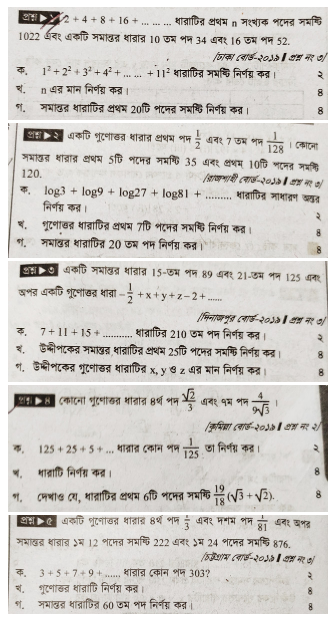 প্রশ্ন ▶ ১ 2 + 4 + 8 + 16 + ... ... ... ধারাটির প্রথম n সংখ্যক পদের সমষ্টি
1022 এবং একটি সমান্তর ধারার 10 তম পদ 34 এবং 16 তম পদ 52.
[ঢাকা বোর্ড-২০১৯ ॥ প্রশ্ন নং ৩]
ক. 1² + 2² + 3² + 4² + ... ... + 11² ধারাটির সমষ্টি নির্ণয় কর। ২
খ. n এর মান নির্ণয় কর। ৪
গ. সমান্তর ধারাটির প্রথম 20টি পদের সমষ্টি নির্ণয় কর। ৪
প্রশ্ন ▶ ২ একটি গুণোত্তর ধারার প্রথম পদ 1/2 এবং 7 তম পদ 1/128। কোনো
সমান্তর ধারার প্রথম 5টি পদের সমষ্টি 35 এবং প্রথম 10টি পদের সমষ্টি
120. [রাজশাহী বোর্ড-২০১৯ ॥ প্রশ্ন নং ৩]
ক. log3 + log9 + log27 + log81 + ......... ধারাটির সাধারণ অন্তর
নির্ণয় কর। ২
খ. গুণোত্তর ধারাটির প্রথম 7টি পদের সমষ্টি নির্ণয় কর। ৪
গ. সমান্তর ধারাটির 20 তম পদ নির্ণয় কর। ৪
প্রশ্ন ▶ ৩ একটি সমান্তর ধারার 15-তম পদ 89 এবং 21-তম পদ 125 এবং
অপর একটি গুণোত্তর ধারা − 1/2 + x + y + z − 2 + ......
[দিনাজপুর বোর্ড-২০১৯ ॥ প্রশ্ন নং ৩]
ক. 7 + 11 + 15 + ............ ধারাটির 210 তম পদ নির্ণয় কর। ২
খ. উদ্দীপকের সমান্তর ধারাটির প্রথম 25টি পদের সমষ্টি নির্ণয় কর। ৪
গ. উদ্দীপকের গুণোত্তর ধারাটির x, y ও z এর মান নির্ণয় কর। ৪
প্রশ্ন ▶ ৪ কোনো গুণোত্তর ধারার 4র্থ পদ √2/3 এবং ৭ম পদ 4/9√3।
[কুমিল্লা বোর্ড-২০১৯ ॥ প্রশ্ন নং ২]
ক. 125 + 25 + 5 + ... ধারার কোন পদ 1/125 তা নির্ণয় কর। ২
খ. ধারাটি নির্ণয় কর। ৪
গ. দেখাও যে, ধারাটির প্রথম 6টি পদের সমষ্টি 19/18 (√3 + √2). ৪
প্রশ্ন ▶ ৫ একটি গুণোত্তর ধারার 4র্থ পদ 1/3 এবং দশম পদ 1/81 এবং অপর
সমান্তর ধারার ১ম 12 পদের সমষ্টি 222 এবং ১ম 24 পদের সমষ্টি 876.
[চট্টগ্রাম বোর্ড-২০১৯ ॥ প্রশ্ন নং ৩]
ক. 3 + 5 + 7 + 9 + ...... ধারার কোন পদ 303? ২
খ. গুণোত্তর ধারাটি নির্ণয় কর। ৪
গ. সমান্তর ধারাটির 60 তম পদ নির্ণয় কর। ৪